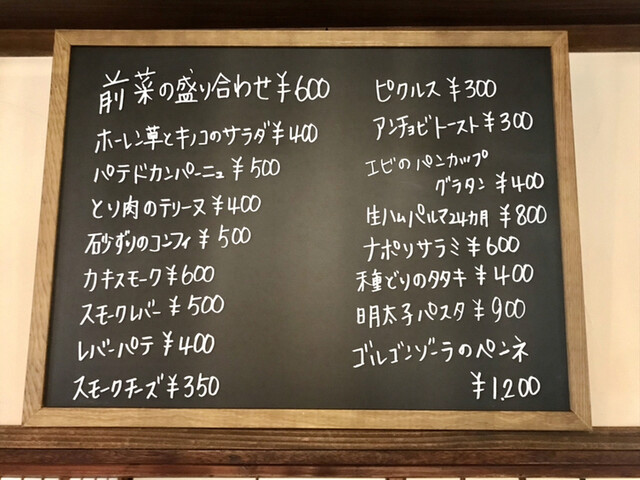 前菜の盛り合わせ ¥600
ホーレン草とキノコのサラダ ¥400
パテドカンパーニュ ¥500
とり肉のテリーヌ ¥400
砂ずりのコンフィ ¥500
カキスモーク ¥600
スモークレバー ¥500
レバーパテ ¥400
スモークチーズ ¥350
ピクルス ¥300
アンチョビトースト ¥300
エビのパンカップ
グラタン ¥400
生ハムパルマ24カ月 ¥800
ナポリサラミ ¥600
種どりのタタキ ¥400
明太子パスタ ¥900
ゴルゴンゾーラのペンネ
¥1.200